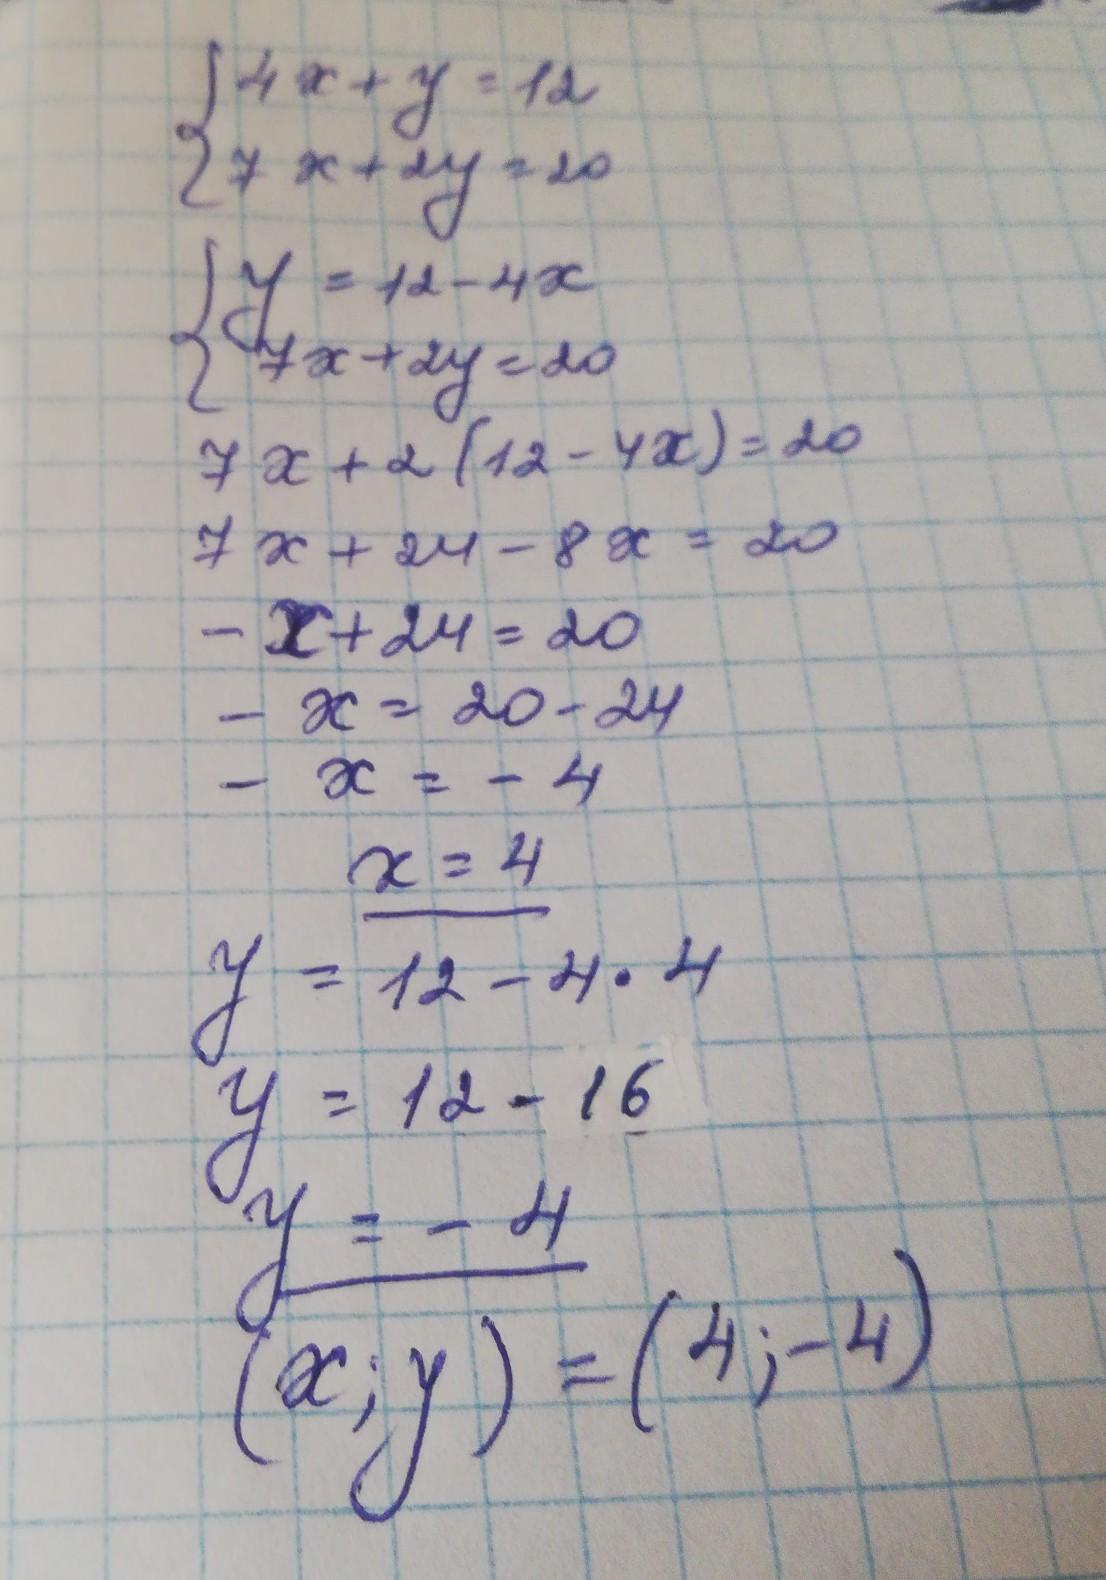 4x + y = 12
7x + 2y = 20
y = 12 - 4x
7x + 2y = 20
7x + 2(12 - 4x) = 20
7x + 24 - 8x = 20
- x + 24 = 20
- x = 20 - 24
- x = - 4
x = 4
y = 12 - 4 · 4
y = 12 - 16
y = - 4
(x; y) = (4; -4)